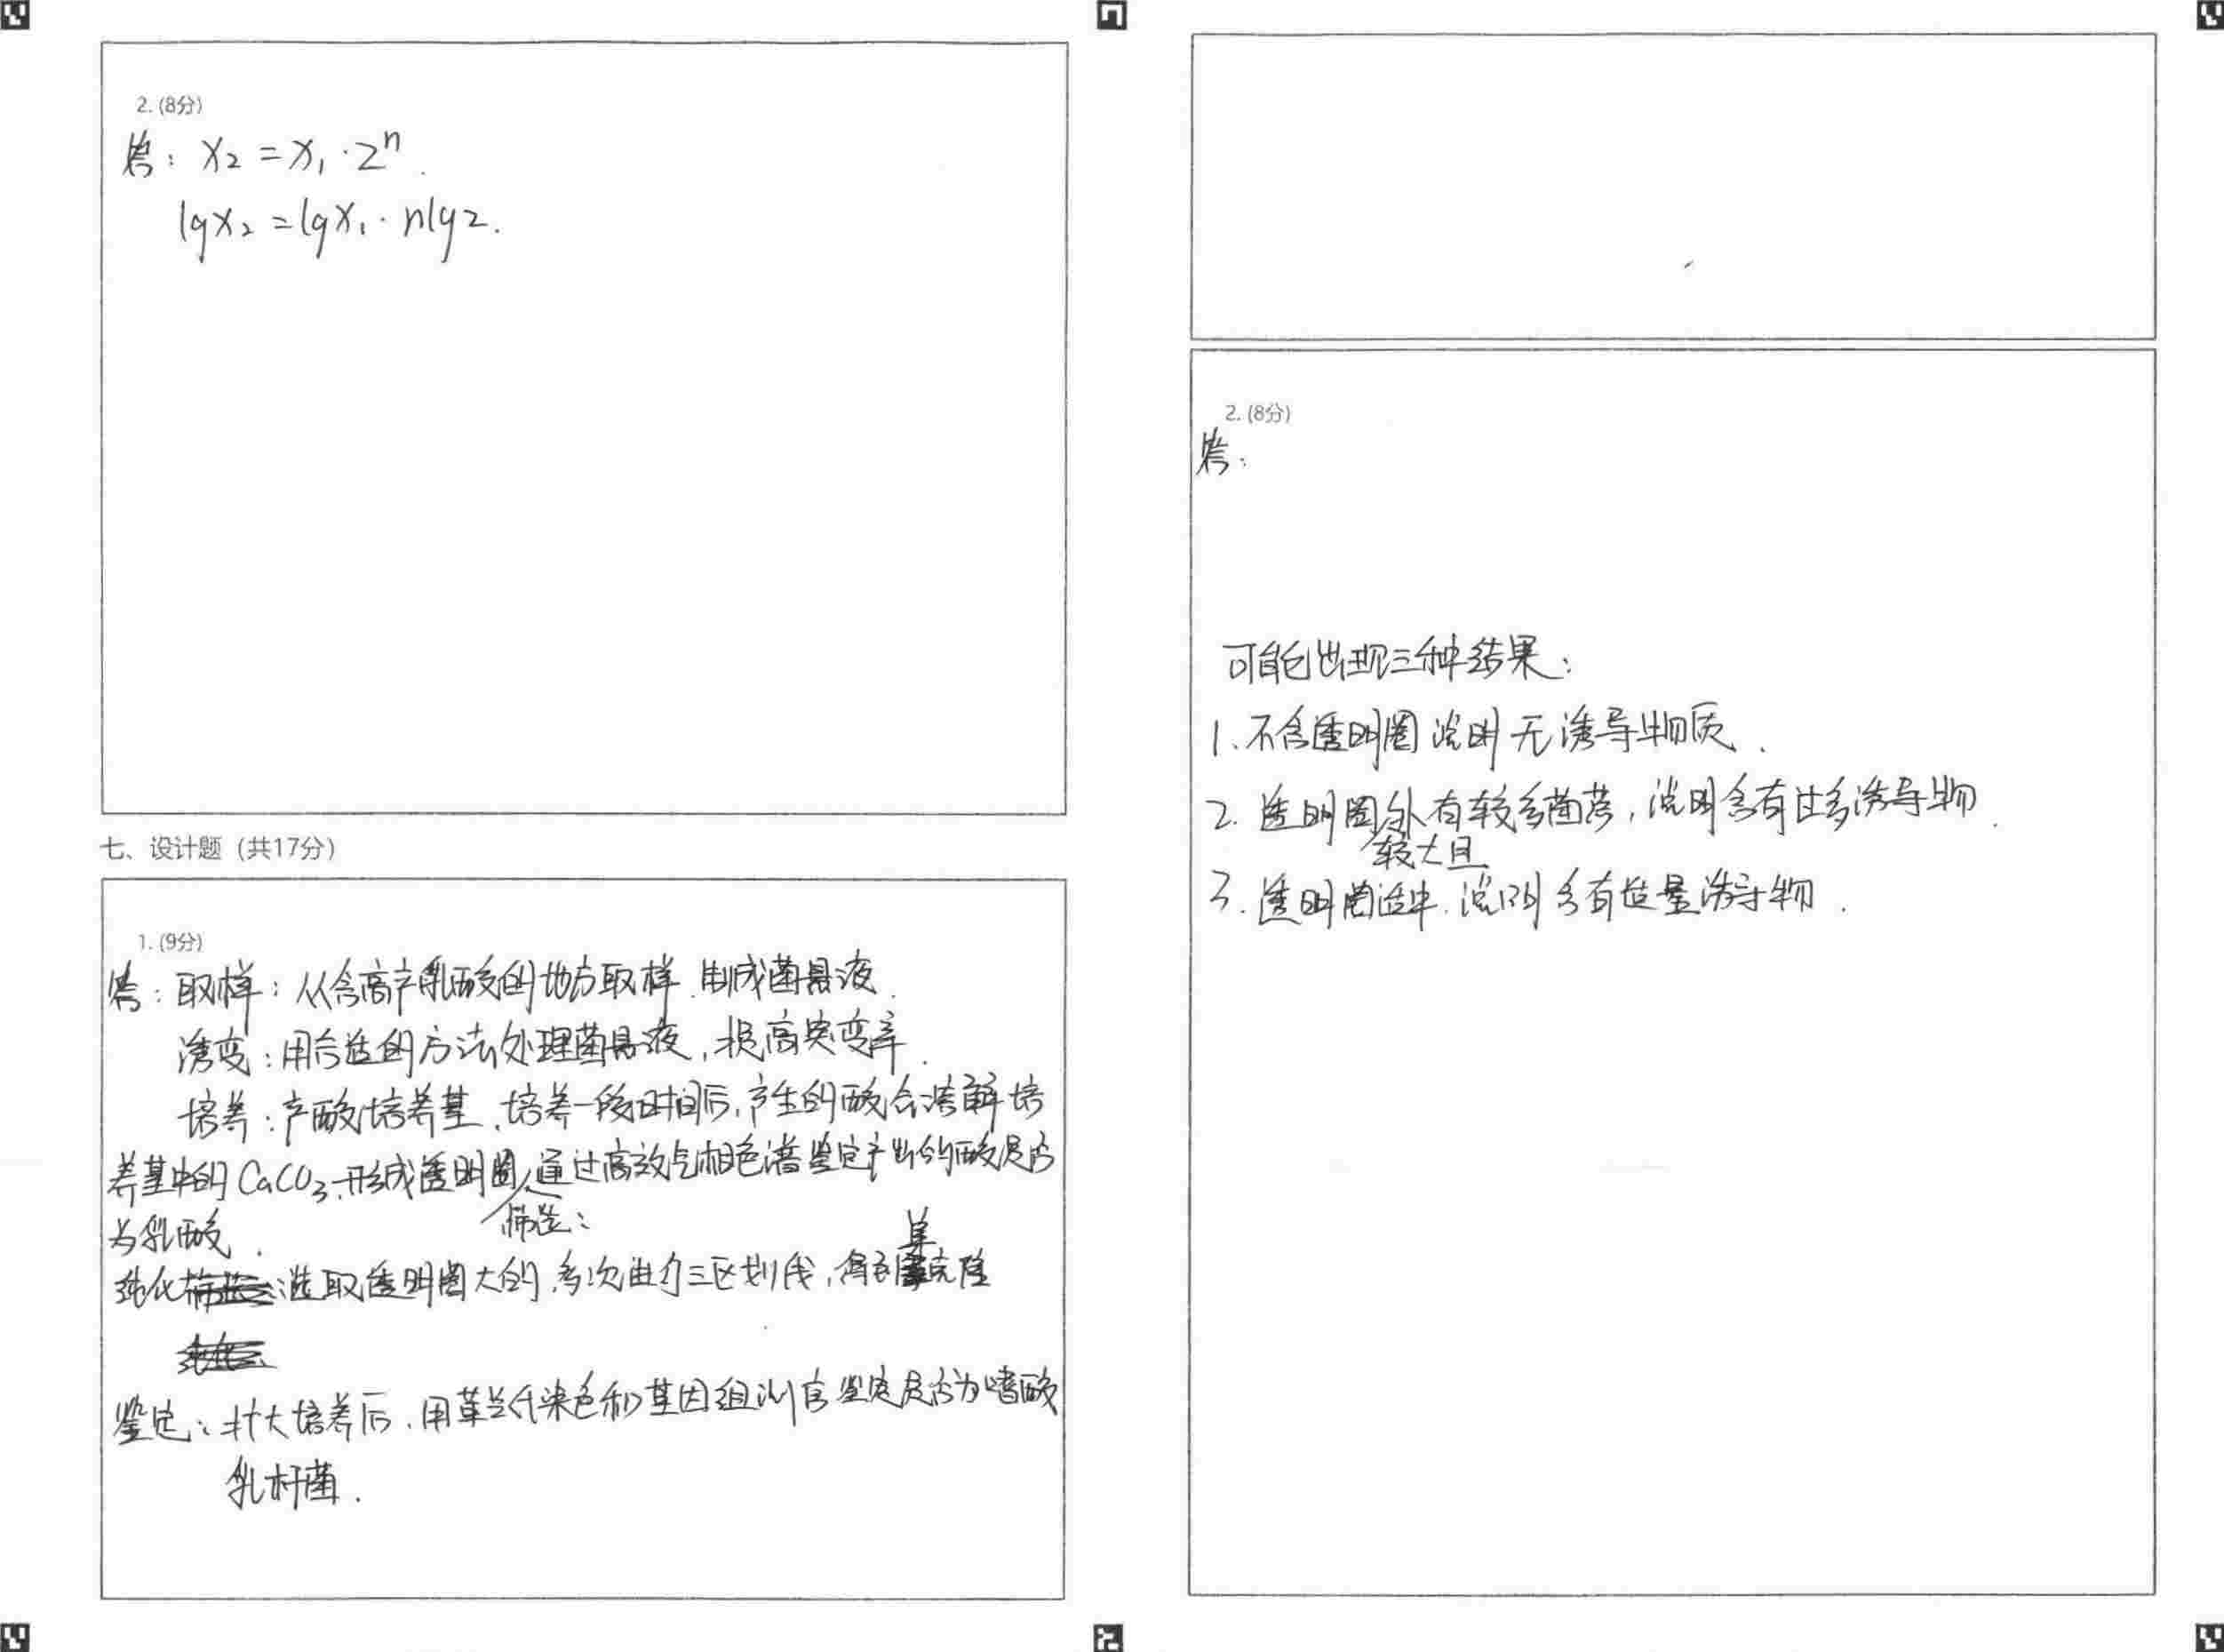 2. (8分)
答：X₂ = X₁ · 2ⁿ.
lgX₂ = lgX₁ · nlg2.
七、设计题（共17分）
1. (9分)
答：取样：从含高产乳酸的地方取样，制成菌悬液.
诱变：用合适的方法处理菌悬液，提高突变率.
培养：产酸培养基，培养一段时间后，产生的酸会溶解培
养基中的CaCO₃，形成透明圈，通过高效气相色谱鉴定产出的酸是否
为乳酸.
筛选：
单
纯化：选取透明圈大的，多次进行三区划线，得到克隆
鉴定：扩大培养后，用革兰氏染色和基因组测序鉴定是否为嗜酸
乳杆菌.
2. (8分)
答：
可能出现三种结果：
1、不含透明圈 说明 无诱导物质.
2. 透明圈外有较多菌落，说明含有过多诱导物.
较大且
3. 透明圈适中，说明含有适量诱导物.